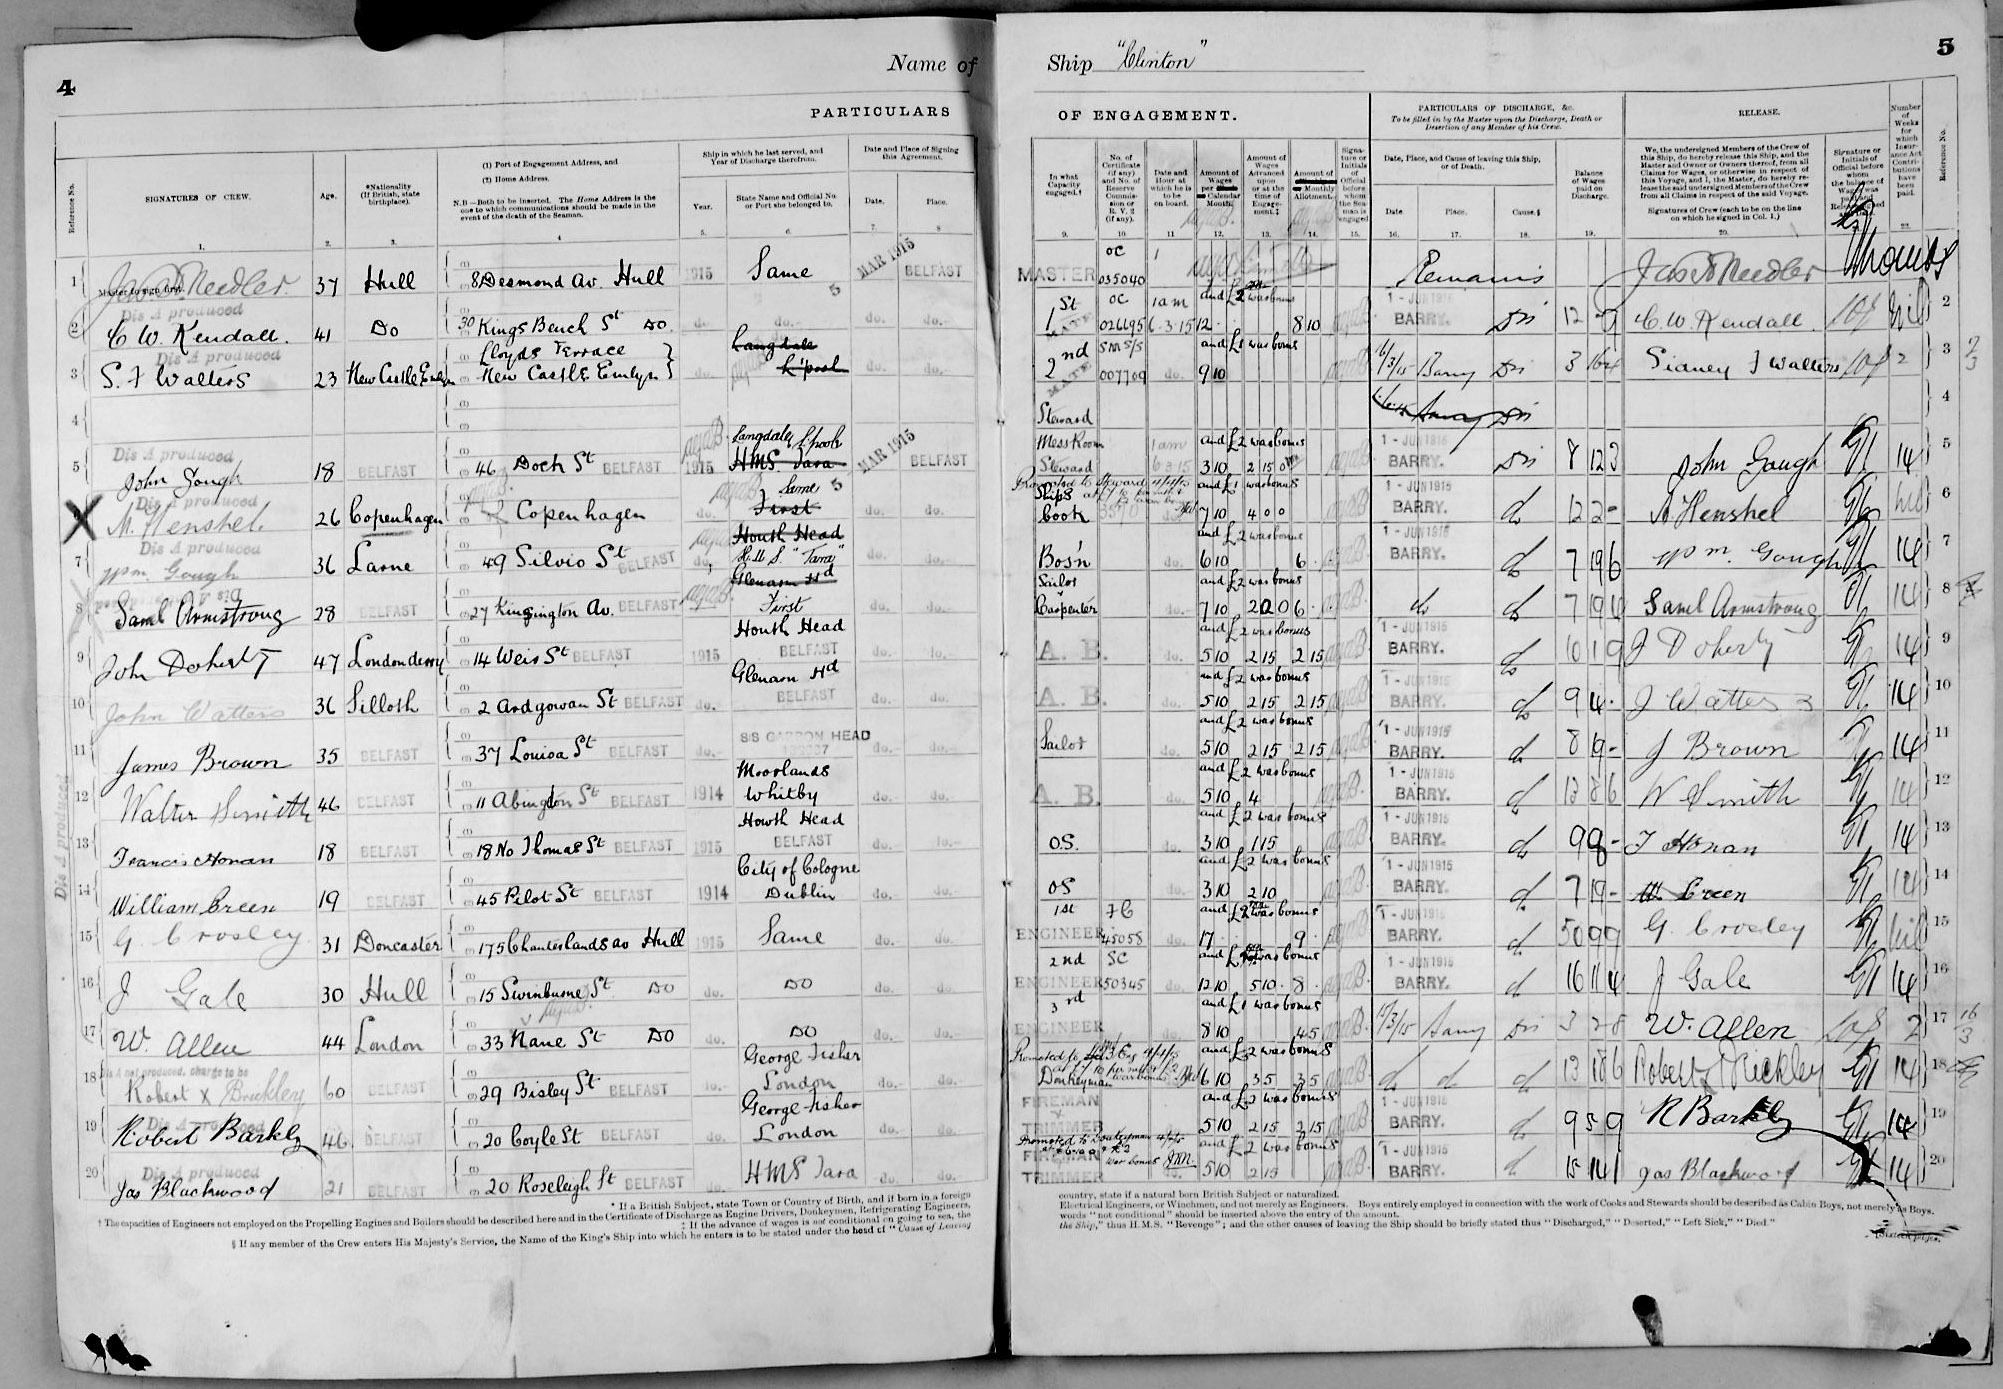 4
Name of
PARTICULARS
Reference No.
SIGNATURES OF CREW.
Age.
*Nationality (If British, state birthplace).
(1) Port of Engagement Address, and
(2) Home Address.
N.B—Both to be inserted. The Home Address is the one to which communications should be made in the event of the death of the Seaman.
Ship in which he last served, and Year of Discharge therefrom.
Year.
State Name and Official No. or Port she belonged to.
Date and Place of Signing this Agreement.
Date.
Place.
1. 2. 3. 4 5. 6. 7. 8
1 Jas Needler 37 Hull 8 Desmond Av. Hull 1915 Same MAR 1915 BELFAST
Master to sign first.
Dis A produced
2 C W. Kendall. 41 Do 30 Kings Bench St Do do. do. do. do.
Dis A produced
3 S. F Walters 23 New Castle Emlyn Lloyds Terrace New Castle Emlyn do. Langdale L'pool do. do.
4
Dis A produced
5 John Gough 18 BELFAST 46 Dock St BELFAST 1915 Langdale L'pool HMS Tara MAR 1915 BELFAST
Dis A produced
6 M. Henshel 26 Copenhagen Copenhagen do. Same First do. do.
Dis A produced
7 Wm. Gough 36 Larne 49 Silvio St BELFAST do. Howth Head H.M.S "Tara" do. do.
Dis A produced
8 Saml Armstrong 28 BELFAST 27 Kinsington Av. BELFAST Glenarm Hd First do. do.
9 John Doherty 47 Londonderry 14 Weir St BELFAST 1915 Howth Head BELFAST do. do.
10 John Watters 36 Silloth 2 Ardgowan St BELFAST do. Glenarm Hd BELFAST do. do.
11 James Brown 35 BELFAST 37 Louisa St BELFAST do. S/S GARRON HEAD do. do.
12 Walter Smith 46 BELFAST 11 Abington St BELFAST 1914 Moorlands Whitby do. do.
13 Francis Honan 18 BELFAST 18 No Thomas St BELFAST 1915 Howth Head BELFAST do. do.
14 William Green 19 BELFAST 45 Pilot St BELFAST 1914 City of Cologne Dublin do. do.
15 G. Crosley 31 Doncaster 175 Chanterlands av Hull 1915 Same do. do.
16 J Gale 30 Hull 15 Swinburne St Do do. Do do. do.
17 W. Allen 44 London 33 Nane St Do do. Do do. do.
Dis A not produced, charge to be
18 Robert X Brickley 60 29 Bisley St BELFAST do. George Fisher London do. do.
Dis A produced
19 Robert Barkly 46 BELFAST 20 Coyle St BELFAST do. George Fisher London do. do.
Dis A produced
20 Jas Blackwood 21 BELFAST 20 Roseleigh St BELFAST do. HMS Tara do. do.
Dis A produced
* If a British Subject, state Town or Country of Birth, and if born in a foreign
† The capacities of Engineers not employed on the Propelling Engines and Boilers should be described here and in the Certificate of Discharge as Engine Drivers, Donkeymen, Refrigerating Engineers,
‡ If the advance of wages is not conditional on going to sea, the
§ If any member of the Crew enters His Majesty's Service, the Name of the King's Ship into which he enters is to be stated under the head of "Cause of Leaving
Ship "Clinton"
5
OF ENGAGEMENT.
PARTICULARS OF DISCHARGE, &c.
To be filled in by the Master upon the Discharge, Death or Desertion of any Member of his Crew.
RELEASE.
Number of Weeks for which Insurance Act Contributions have been paid.
Reference No.
In what Capacity engaged.†
No. of Certificate (if any) and No. of Reserve Commission or R.V.2 (if any).
Date and Hour at which he is to be on board.
Amount of Wages per Calendar Month.
Amount of Wages Advanced upon or at the time of Engagement.‡
Amount of Monthly Allotment.
Signature or Initials of Official before whom the Seaman is engaged
Date, Place, and Cause of leaving this Ship, or of Death.
Date
Place.
Cause.§
Balance of Wages paid on Discharge.
We, the undersigned Members of the Crew of this Ship, do hereby release this Ship, and the Master and Owner or Owners thereof, from all Claims for Wages, or otherwise in respect of this Voyage, and I, the Master, do hereby release the said undersigned Members of the Crew from all Claims in respect of the said Voyage.
Signatures of Crew (each to be on the line on which he signed in Col. 1.)
9. 10. 11. 12. 13. 14. 15. 16. 17. 18. 19. 20. 22.
MASTER OC 035040 Remains Jas Needler Thomas
1st MATE OC 026695 1 am 6.3.15 12 and £2 war bonus 8 10 1 - JUN 1915 BARRY. Dis 12 - 9 C. W. Kendall. Nil 2
2nd MATE SMS/S 007709 do. 9 10 and £1 war bonus Barry Dis Sidney F Walters 2 3
Steward Dis 4
Mess Room Steward 1 am 6 3 15 3 10 and £2 war bonus 2 15 0 1 - JUN 1915 BARRY. Dis 8 12 3 John Gough 14 5
Ships Cook 7 10 and £1 war bonus 4 0 0 1 - JUN 1915 BARRY. do 12 2 - M Henshel Nil 6
Bos'n do. 6 10 and £2 war bonus 6 1 - JUN 1915 BARRY. do 7 19 6 Wm. Gough 14 7
Sailor Carpenter do. 7 10 and £2 war bonus 6 do do Saml Armstrong 14 8
A. B. do. 5 10 and £2 war bonus 2 15 2 15 1 - JUN 1915 BARRY. do 10 1 9 J Doherty 14 9
A. B. do. 5 10 and £2 war bonus 2 15 2 15 1 - JUN 1915 BARRY. do 9 4 - J Watters 14 10
Sailor do. 5 10 and £2 war bonus 2 15 2 15 1 - JUN 1915 BARRY. do 8 19 - J Brown 14 11
A. B. do. 5 10 and £2 war bonus 4 1 - JUN 1915 BARRY. do 13 8 6 W Smith 14 12
O.S. do. 3 10 and £2 war bonus 1 15 1 - JUN 1915 BARRY. do 9 9 - F Honan 14 13
OS do. 3 10 and £2 war bonus 2 10 1 - JUN 1915 BARRY. do 7 19 - W Green 14 14
1st ENGINEER FC 45058 do. 17 and £2 war bonus 9 1 - JUN 1915 BARRY. do 50 9 9 G. Crosley Nil 15
2nd ENGINEER SC 50345 do. 12 10 war bonus 5 10 8 1 - JUN 1915 BARRY. do 16 11 4 J Gale 14 16
3rd ENGINEER 8 10 and £1 war bonus 4 5 Barry Dis 3 2 8 W. Allen 2 17
Donkeyman 6 10 and £2 war bonus 3 5 3 5 do do do 13 18 6 Robert X Brickley 14 18
FIREMAN X TRIMMER 5 10 and £2 war bonus 2 15 2 15 1 - JUN 1915 BARRY. do 9 5 9 R Barkly 14 19
Promoted to Donkeyman
FIREMAN TRIMMER do. 5 10 and £2 war bonus 2 15 1 - JUN 1915 BARRY. do 15 14 1 Jas Blackwood 14 20
country, state if a natural born British Subject or naturalized.
Electrical Engineers, or Winchmen, and not merely as Engineers. Boys entirely employed in connection with the work of Cooks and Stewards should be described as Cabin Boys, not merely as Boys.
words "not conditional" should be inserted above the entry of the amount.
the Ship," thus H.M.S. "Revenge"; and the other causes of leaving the Ship should be briefly stated thus "Discharged," "Deserted," "Left Sick," "Died."